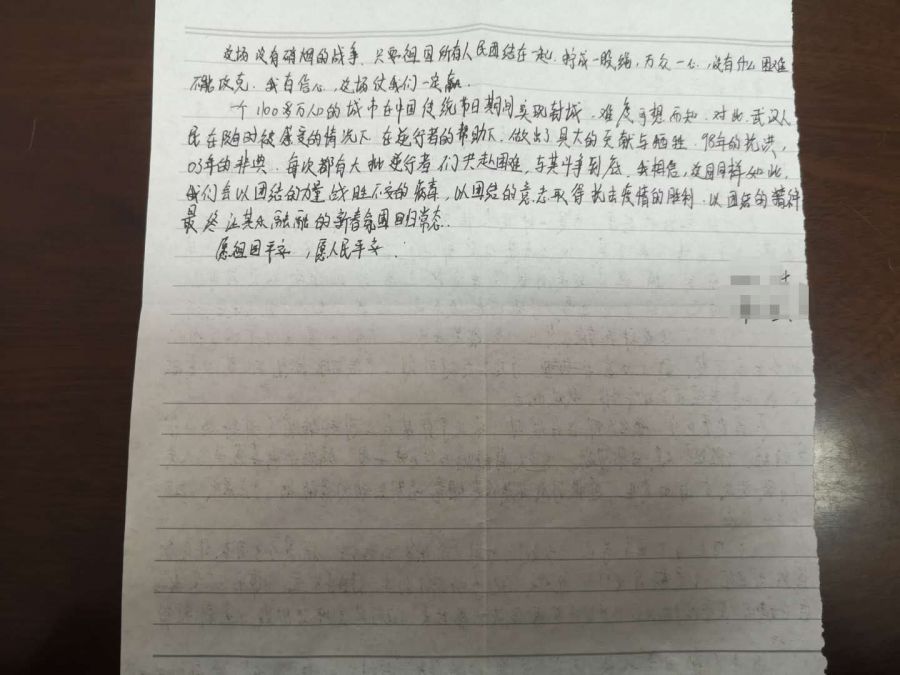 这场没有硝烟的战争，只要祖国所有人民团结在一起，拧成一股绳，万众一心，没有什么困难
不能攻克。我有信心，这场仗我们一定赢。
一个1100多万人口的城市在中国传统节日期间实现封城，难度可想而知。对此，武汉人
民在随时被感变的情况下，在逆行者的帮助下，做出了具大的贡献与牺牲。98年的抗洪，
03年的非典，每次都有大批逆行者们共赴困难，与其斗争到底，我相信，这回同样如此，
我们会以团结的力量战胜不安的病毒，以团结的意志取得抗击疫情的胜利，以团结的精神
最终让其乐融融的新春氛围回归常态。
愿祖国平安，愿人民平安．